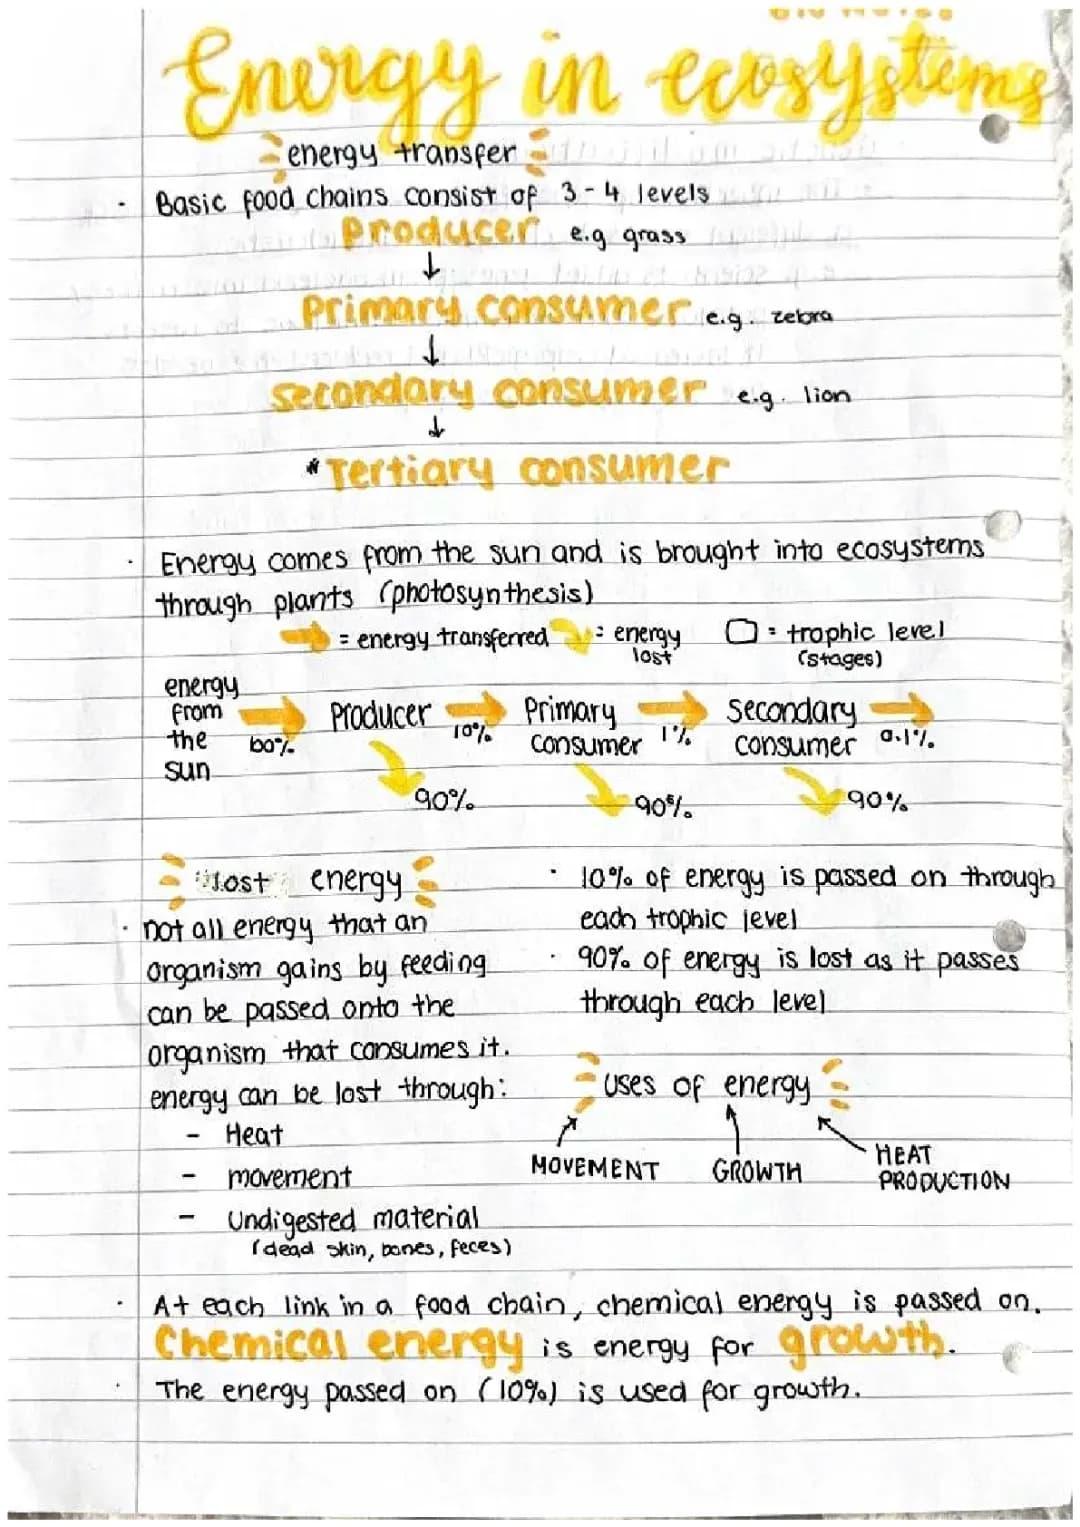 Energy in ecosystems
energy transfer
· Basic food chains consist of 3-4 levels
Producer e.g grass
↓
Primary consumer e.g. zebra
↓
secondary consumer e.g. lion
↓
*Tertiary consumer
· Energy comes from the sun and is brought into ecosystems
through plants (photosynthesis)
= energy transferred = energy lost = trophic level (stages)
energy from the sun 100% Producer 10% Primary consumer 1% Secondary consumer 0.1%.
90% 90% 90%
"Lost" energy
· not all energy that an
organism gains by feeding
can be passed onto the
organism that consumes it.
energy can be lost through:
- Heat
- movement
- Undigested material
(dead skin, bones, feces)
· 10% of energy is passed on through
each trophic level
· 90% of energy is lost as it passes
through each level
uses of energy
MOVEMENT GROWTH HEAT PRODUCTION
· At each link in a food chain, chemical energy is passed on.
Chemical energy is energy for growth.
· The energy passed on (10%) is used for growth.